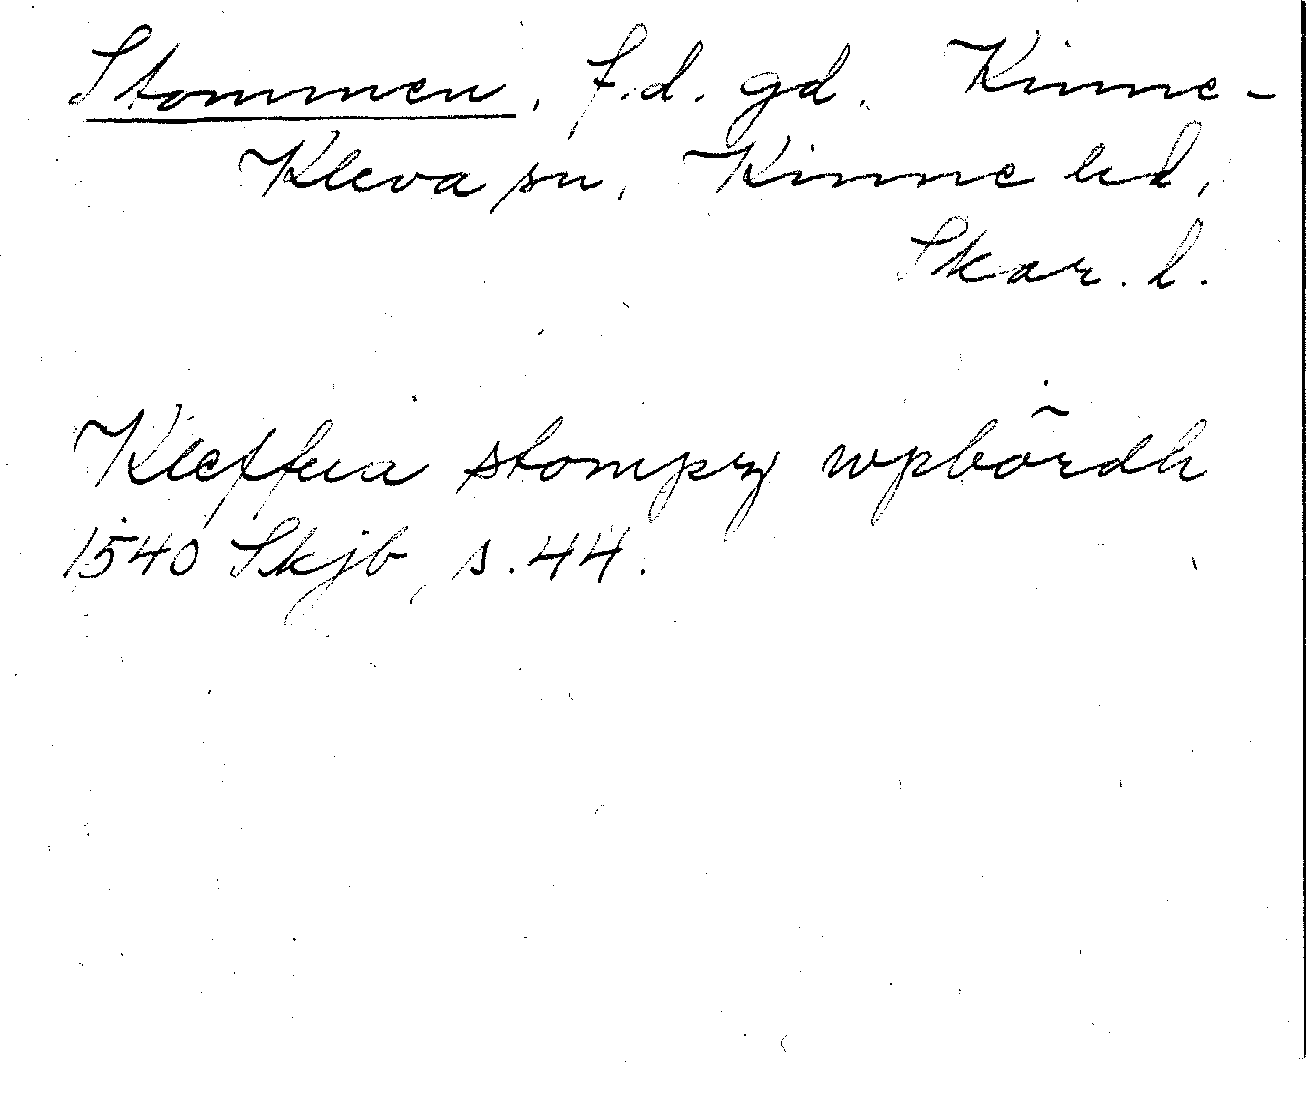 Stommen, f.d. gd. Kinne-
Kleva sn, Kinne hd,
Skar. l.
Kleffua stompn wpbördh
1540 Skjb, s. 44.